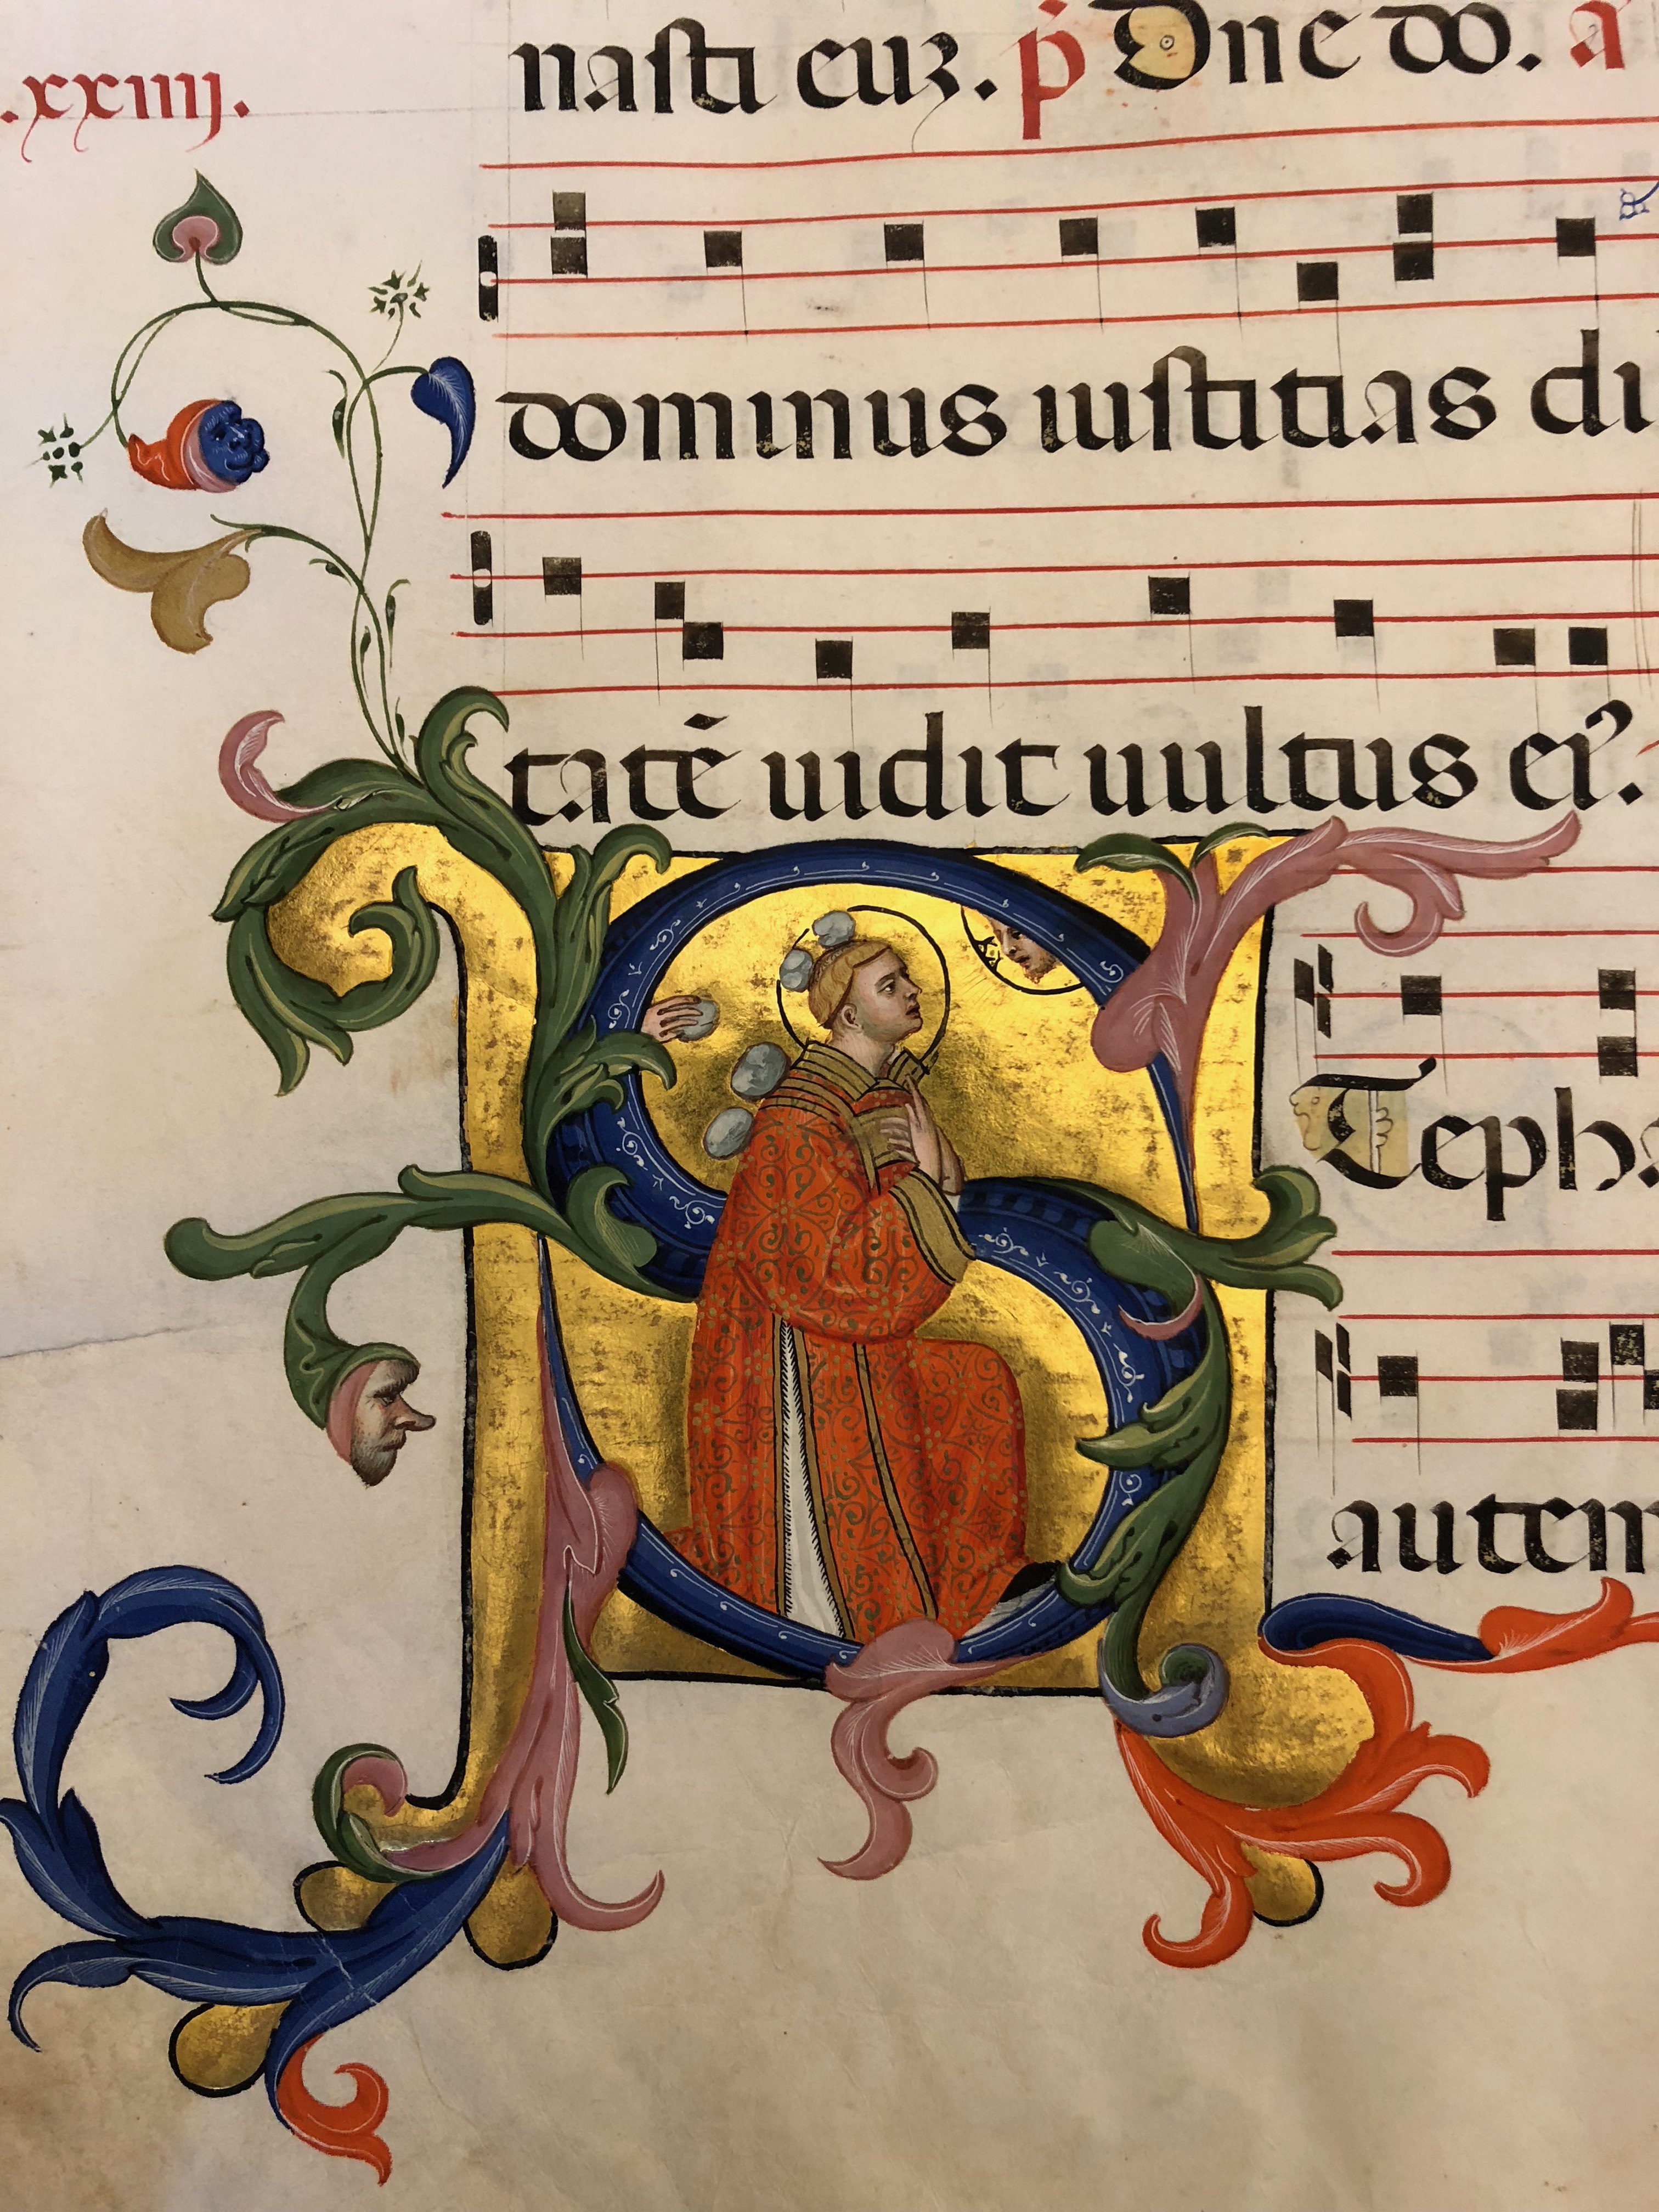 .xxiiij.
nasti euʒ. p̄ Dne do. a
dominus iustitias di
tatē uidit uultus ei᾽.
S Teph
autem